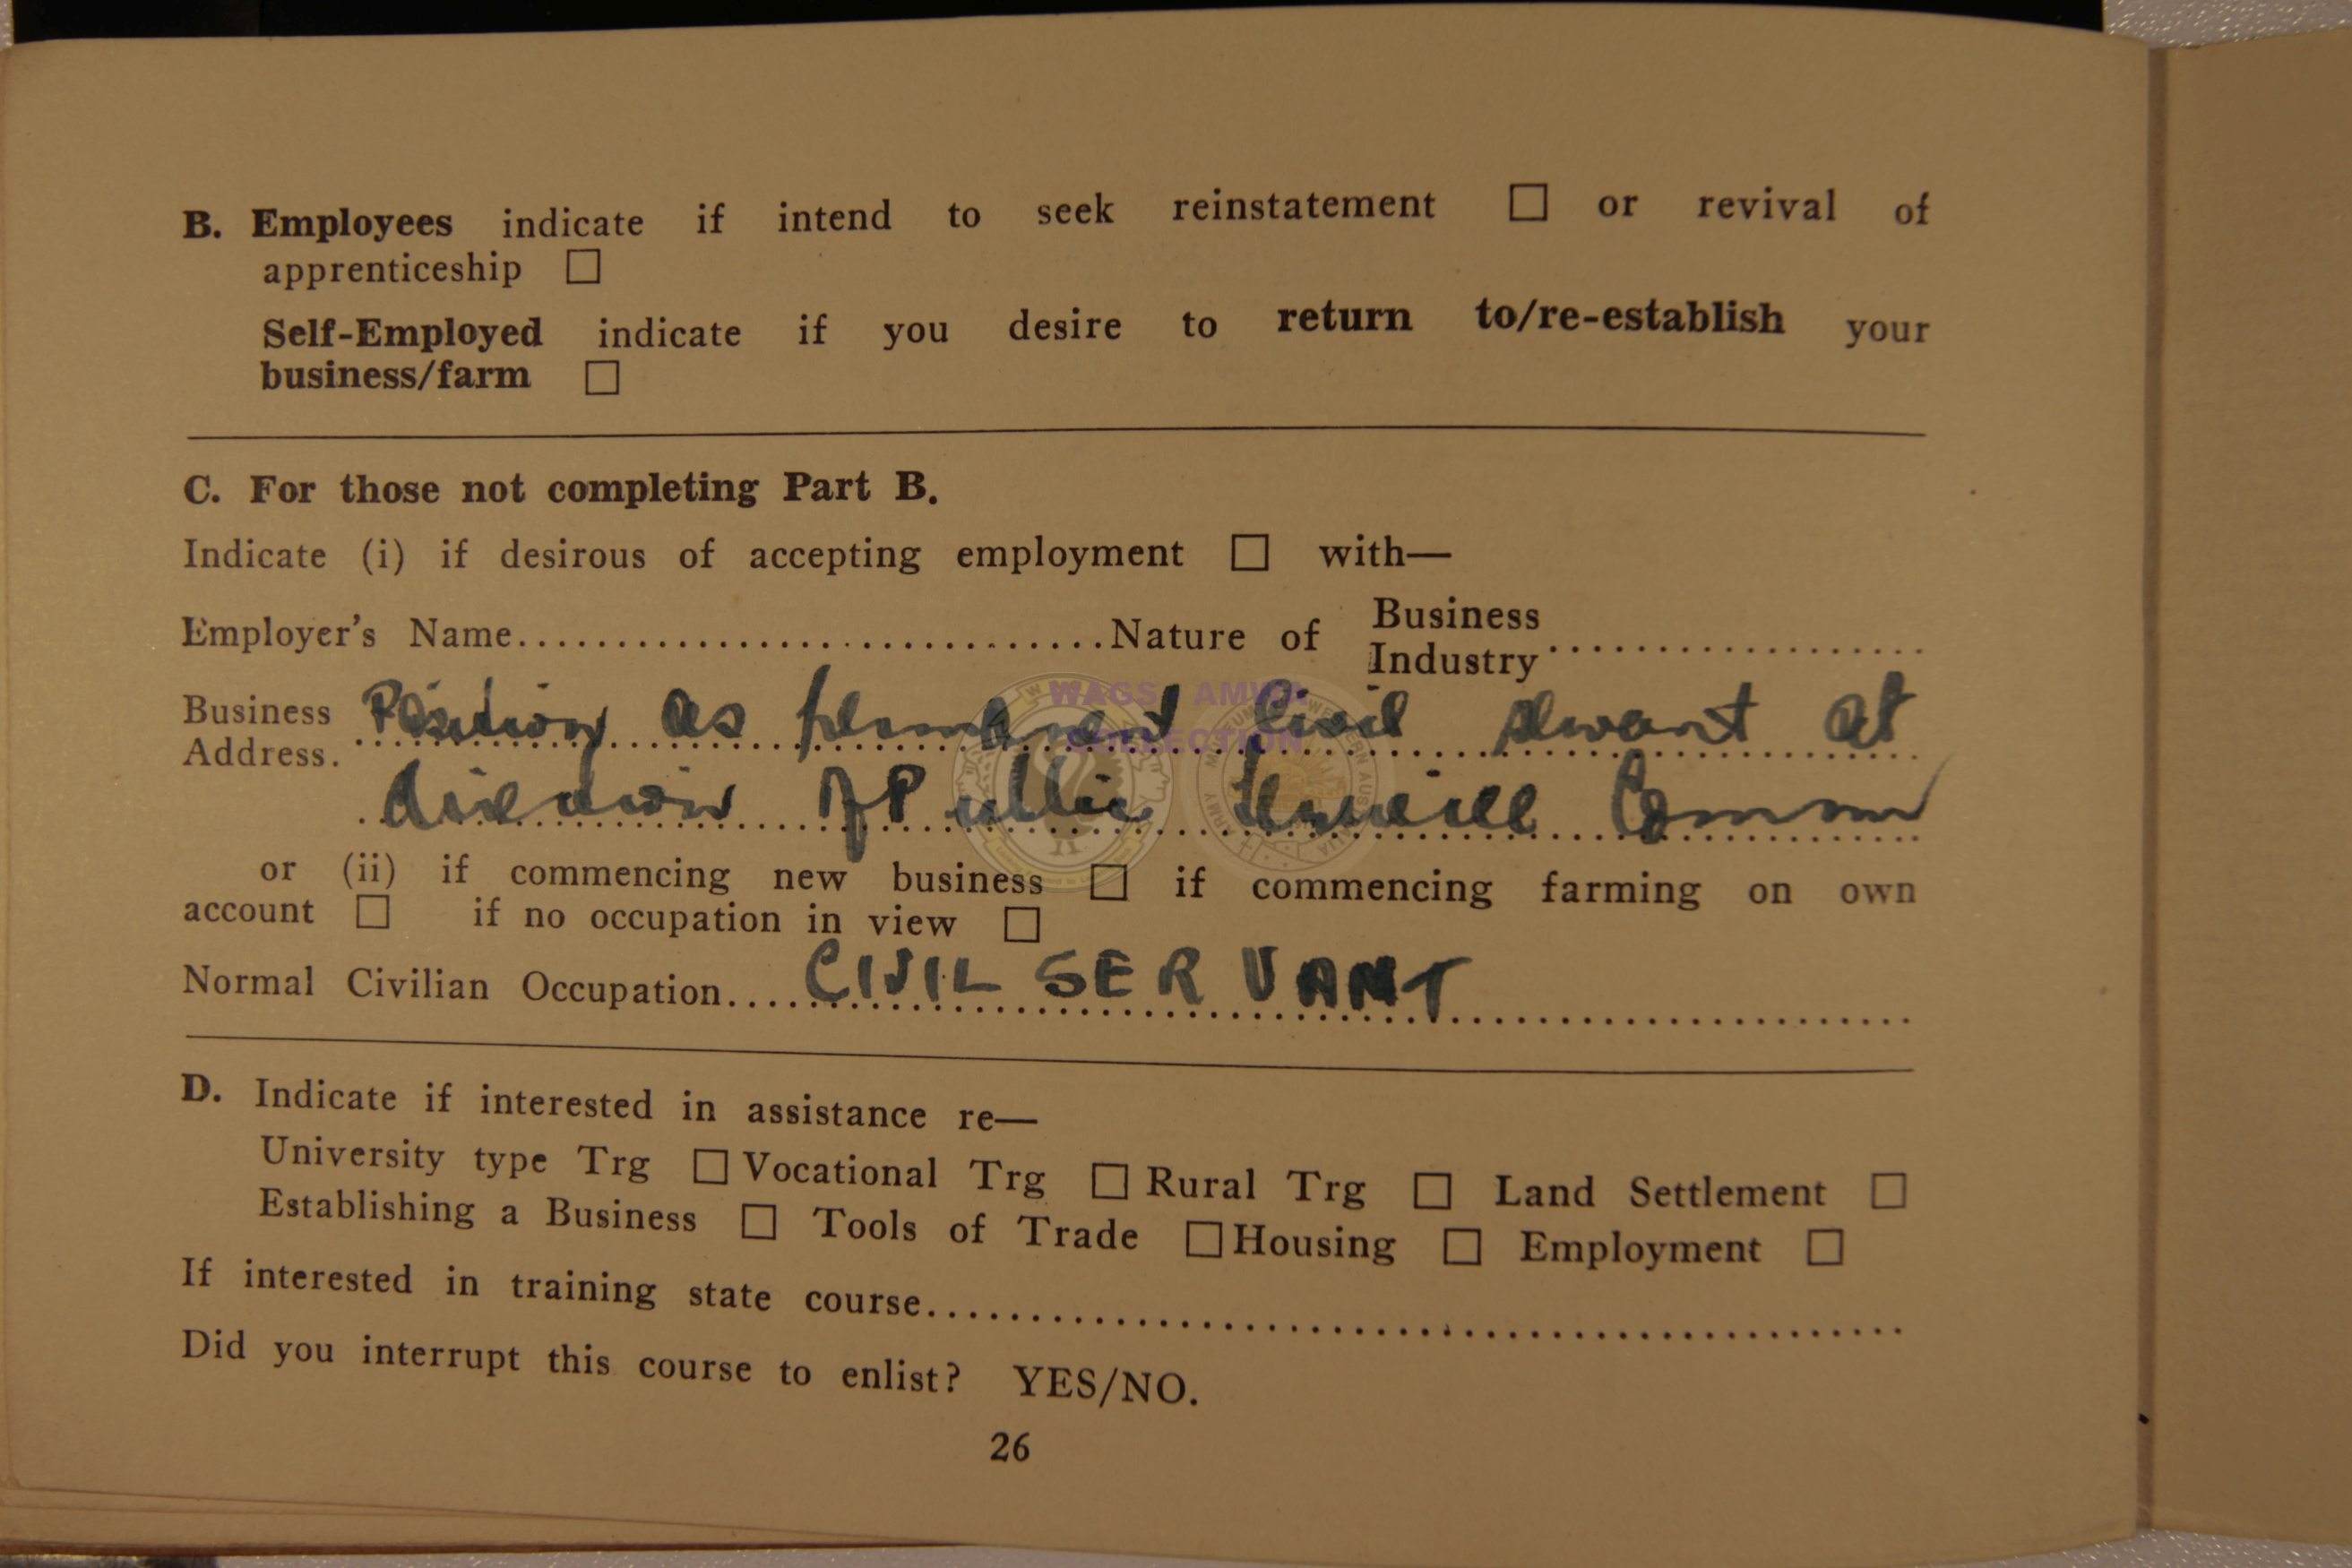 B. Employees indicate if intend to seek reinstatement □ or revival of
apprenticeship □
Self-Employed indicate if you desire to return to/re-establish your
business/farm □
C. For those not completing Part B.
Indicate (i) if desirous of accepting employment □ with—
Employer's Name..............................Nature of Business Industry...................
Business Address. Position as permanent Civil servant at
discretion of Public Service Comm
or (ii) if commencing new business □ if commencing farming on own
account □ if no occupation in view □
Normal Civilian Occupation.... CIVIL SERVANT
D. Indicate if interested in assistance re—
University type Trg □ Vocational Trg □ Rural Trg □ Land Settlement □
Establishing a Business □ Tools of Trade □ Housing □ Employment □
If interested in training state course..........................................
Did you interrupt this course to enlist? YES/NO.
26
WAGS AMWA
COLLECTION